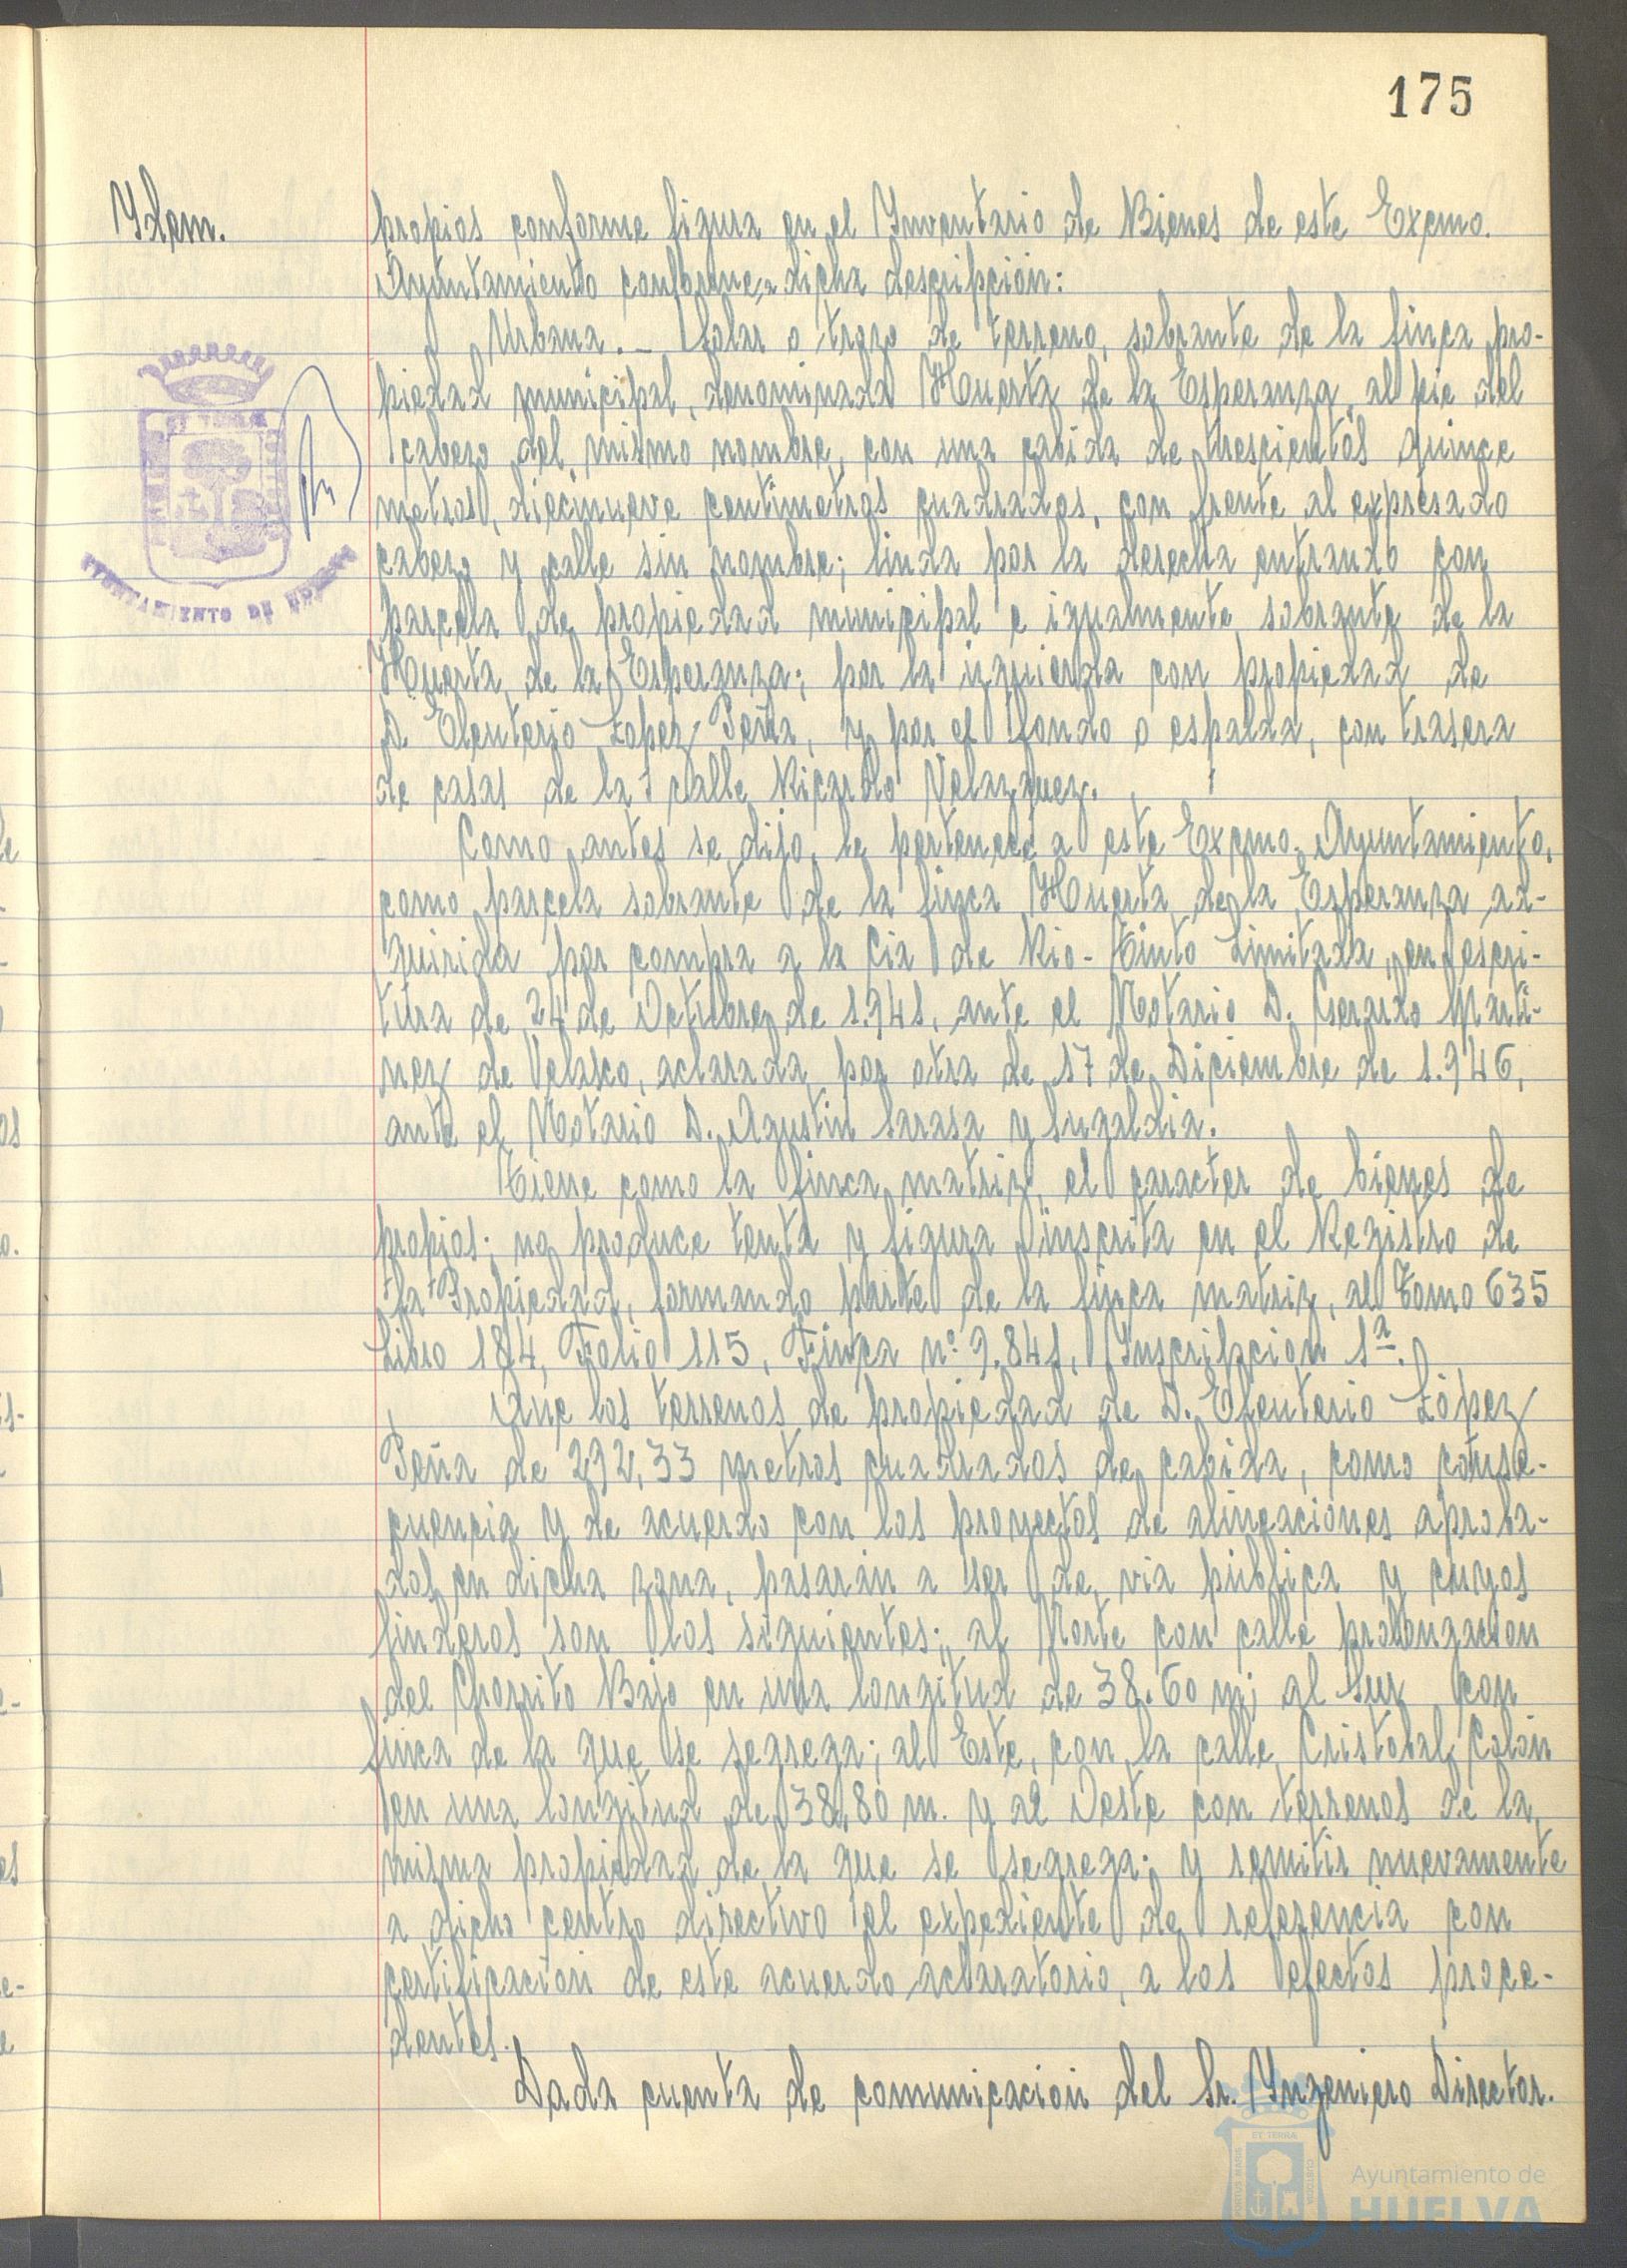 175
Ydem.
propios conforme figura en el Ynventario de Bienes de este Excmo.
Ayuntamiento conforme a dicha descripción:
Urbana._ Solar o trozo de terreno, sobrante de la finca pro-
piedad municipal, denominada Huerta de la Esperanza, al pie del
cabezo del mismo nombre, con una cabida de trescientos quince
metros, diecinueve centimetros cuadrados, con frente al expresado
cabezo y calle sin nombre; linda por la derecha entrando con
parcela de propiedad municipal e igualmente sobrante de la
Huerta de la Esperanza; por la izquierda con propiedad de
D. Eleuterio Lopez Peña, y por el fondo o espalda, con trasera
de casas de la calle Ricardo Velazquez.
Como antes se dijo, le pertenece a este Excmo. Ayuntamiento,
como parcela sobrante de la finca Huerta de la Esperanza ad-
quirida por compra a la Cia de Rio-Tinto Limitada, en escri-
tura de 24 de Octubre de 1.941, ante el Notario D. Gerardo Marti-
nez de Velasco, aclarada por otra de 17 de Diciembre de 1.946,
ante el Notario D. Agustin Sarasa y Sugaldia.
Tiene como la finca matriz, el caracter de bienes de
propios; no produce renta y figura inscrita en el Registro de
la Propiedad, formando parte de la finca matriz, al Tomo 635
Libro 184, Folio 115, Finca nº 9.841, Inscripcion 1ª.
Que los terrenos de propiedad de D. Eleuterio López
Peña de 292,33 metros cuadrados de cabida, como conse-
cuencia y de acuerdo con los proyectos de alineaciones aproba-
dos en dicha zona, pasarán a ser de via pública y cuyos
linderos son los siguientes; al Norte con calle prolongación
del Chorrito Bajo en una longitud de 38.60 m; al Sur con
finca de la que se segrega; al Este, con la calle Cristobal Colón
en una longitud de 38,80 m. y al Oeste con terrenos de la
misma propiedad de la que se segrega; y remitir nuevamente
a dicho centro directivo el expediente de referencia con
certificación de este acuerdo aclaratorio, a los efectos proce-
dentes.
Dada cuenta de comunicación del Sr. Yngeniero Director.
AYUNTAMIENTO DE HUELVA
Ayuntamiento de
HUELVA